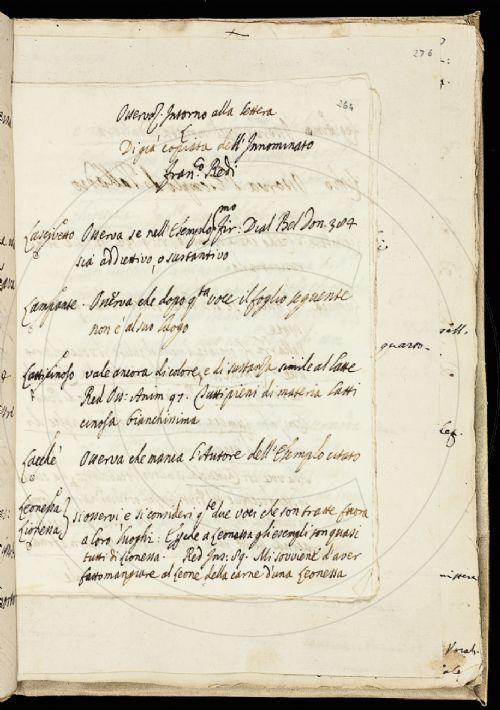 276
264
Osservoz. Intorno alla lettera
L
Di già copiata dell'Innominato
Franco. Redi
Lascivetto Osserva se nell'Esemplo pmo Fir: Dial Bel Don. 384
sia addiettivo, o sustantivo
Lampante. Osserva che dopo qta voce il foglio seguente
non è al suo luogo
Lattificioso vale ancora di colore, e di sustanza simile al latte
Red Oss: Anim 97. tutti pieni di materia latti
cinosa bianchissima
Lacchè Osserva che manca l'Autore dell'Esemplo citato
Leonessa
Lionessa
si osservi e si consideri qte due voci che son tratte fuora
a loro luoghi. E perche a Leonessa gli esempli son quasi
tutti di Lionessa. Red Ins: 59. Mi sovviene d'aver
fatto mangiare al leone della carne d'una Leonessa
quarto.
Vocab.